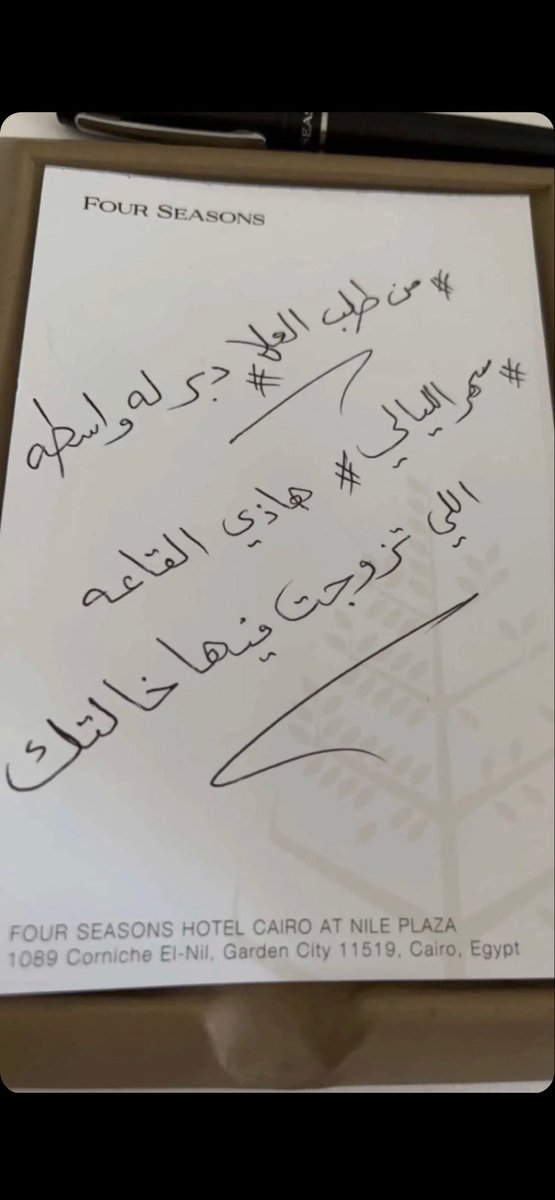 SEAS
FOUR SEASONS
# من طلب العلا # دبر له واسطه
# سهر الليالي # هاذي القاعه
اللي تزوجت فيها خالتك
FOUR SEASONS HOTEL CAIRO AT NILE PLAZA
1089 Corniche El-Nil, Garden City 11519, Cairo, Egypt